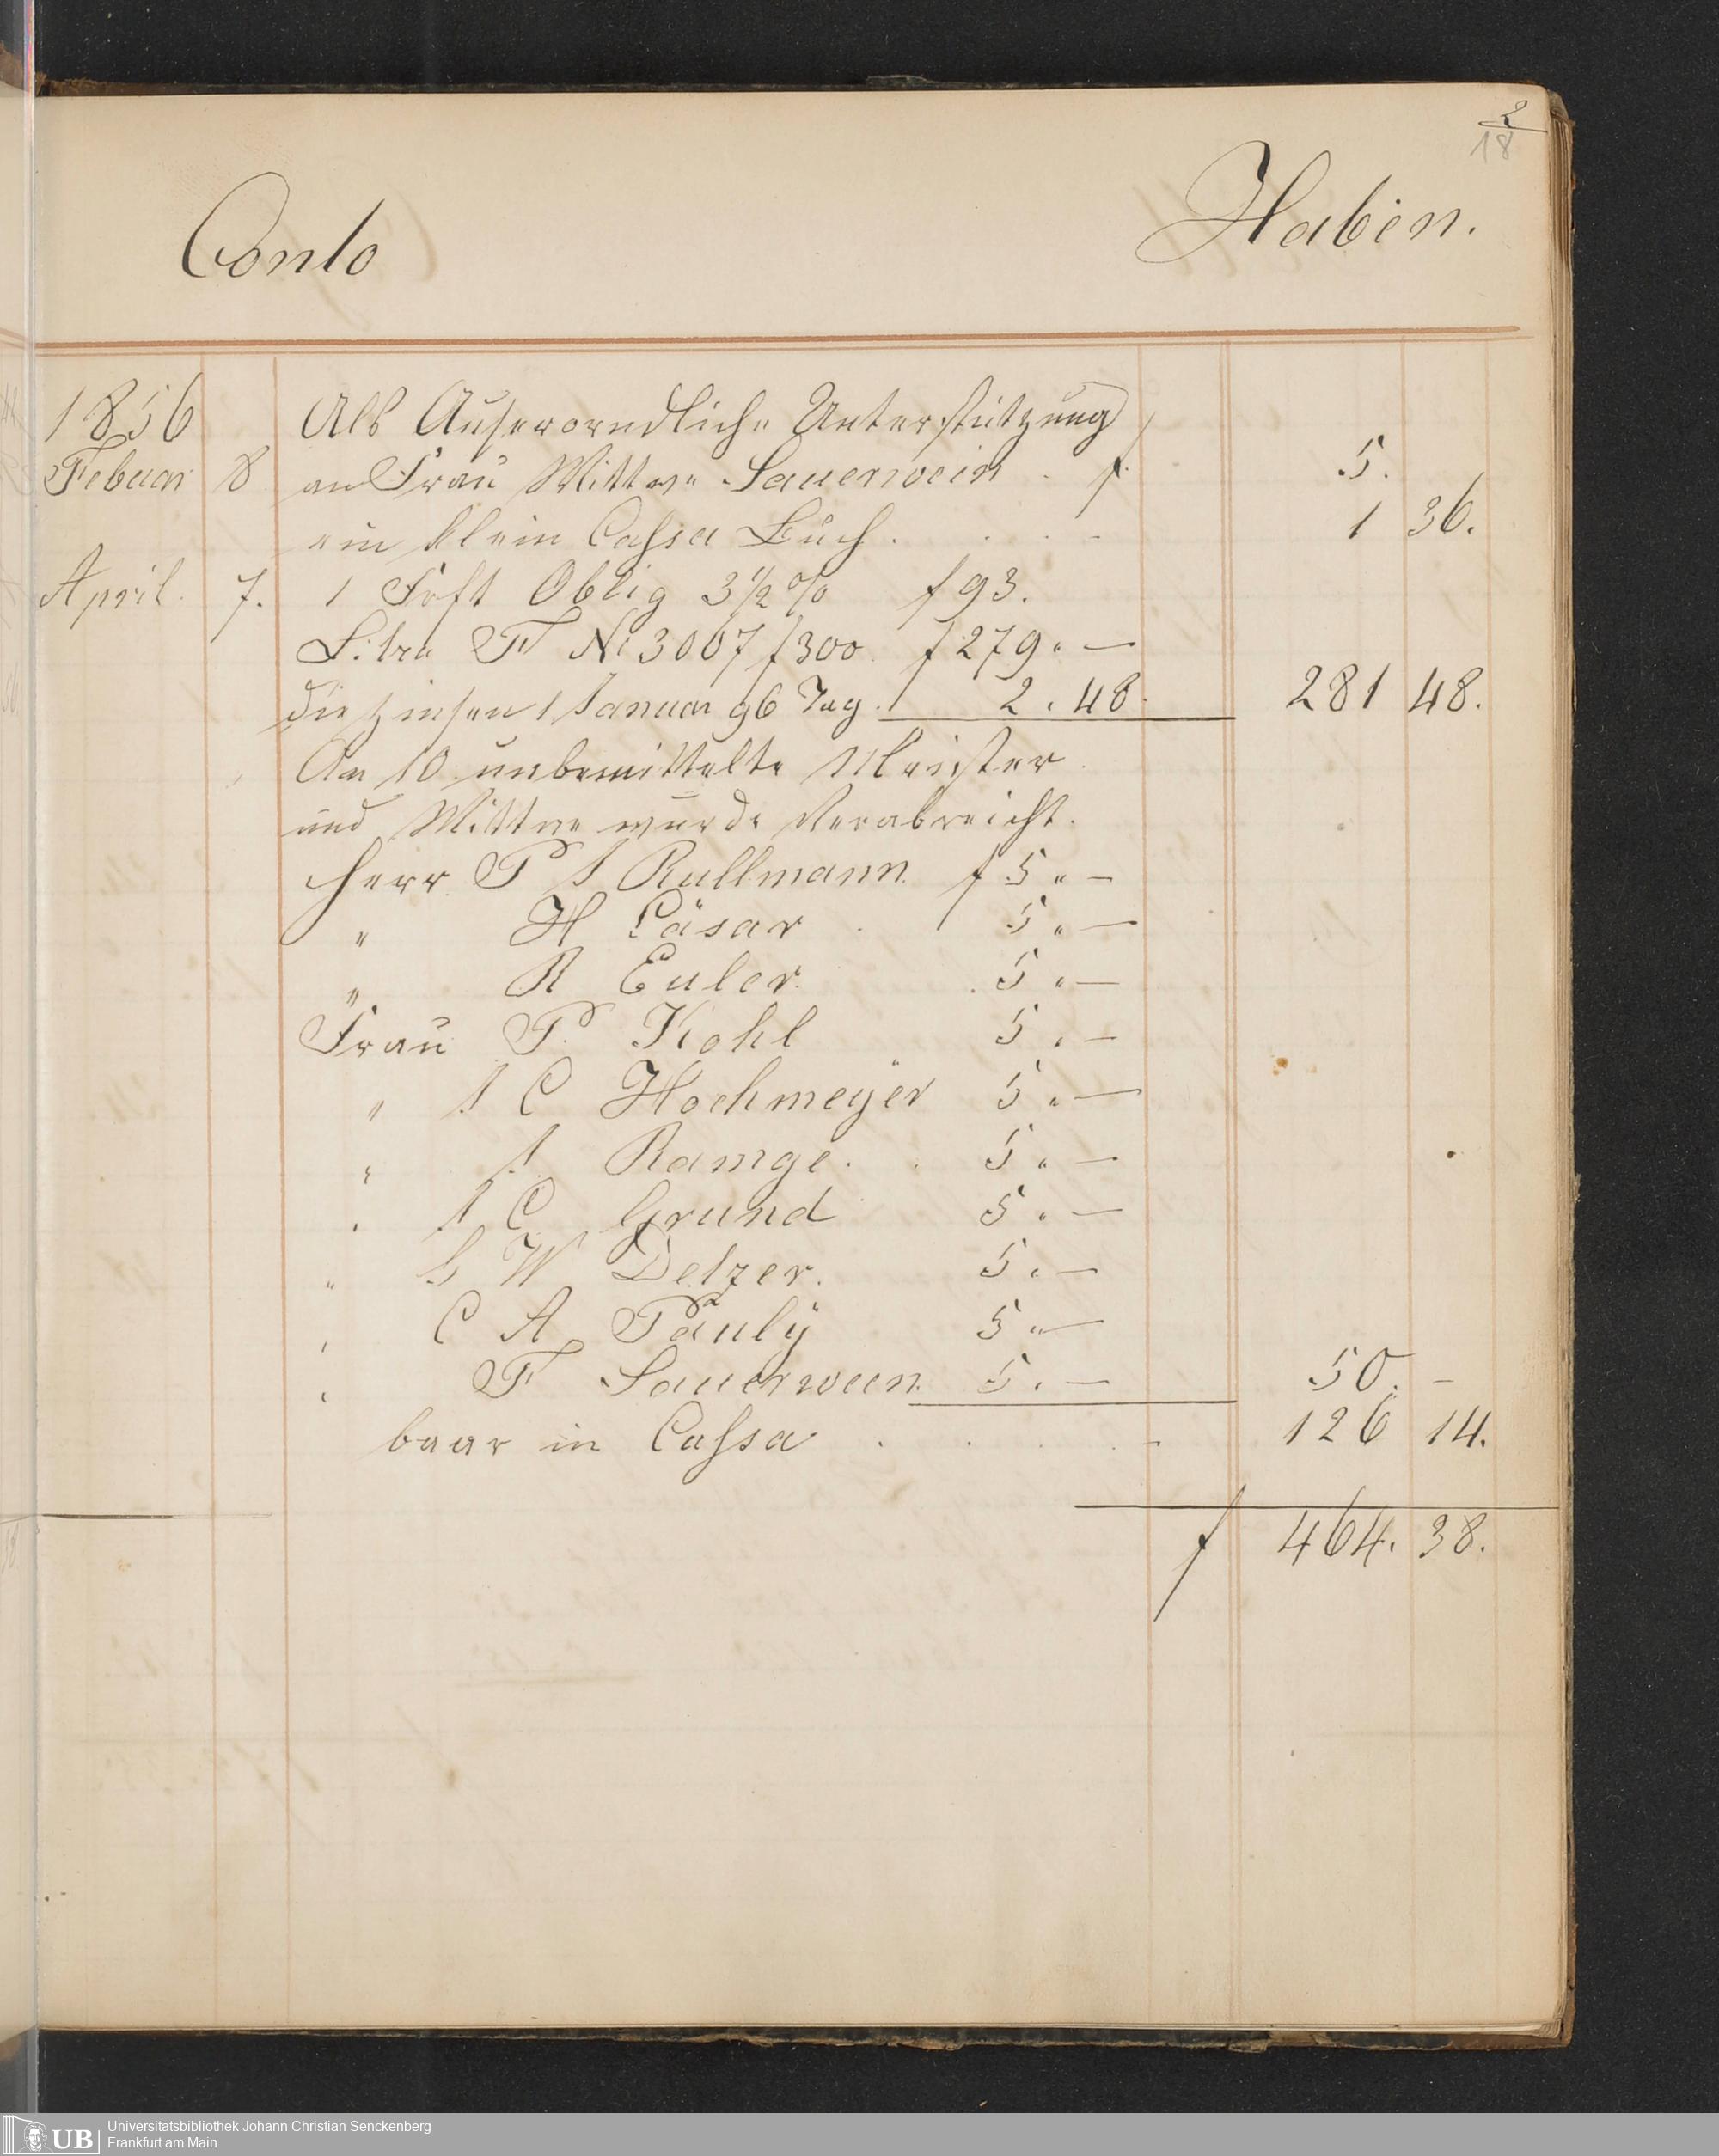 2
18
Conto Haben.
1856 Als Auserorndliche Unterstützung
Februar 8 an Frau Wittwe Sauerwein . f. 5.
ein klein Cassa Buch. . . . - 1 36.
April. 7. 1 Frft Oblig 3½ % f 93.
Litra F No 3007 f 300. f 279 „ —
die zinsen 1 Januar 96 Tag. 2 . 48. 281 48.
An 10 unbemittelte Meister
und Wittwe wurde Verabreicht.
Herr P J Rullmann f 5 „ —
„ H Cäsar . 5 „ —
„ R Euler . 5 „ —
Frau P. Kohl 5 . —
„ J C Hochmeyer 5 „ —
„ J Ramge . . 5 „ —
„ J C Grund 5 . —
„ W Delzer. 5 . —
„ C A Pauly 5 „ —
„ F Sauerwein 5 . — 50. —
baar in Cassa . . . . - 126 14.
f 464. 38.
UB Universitätsbibliothek Johann Christian Senckenberg
Frankfurt am Main